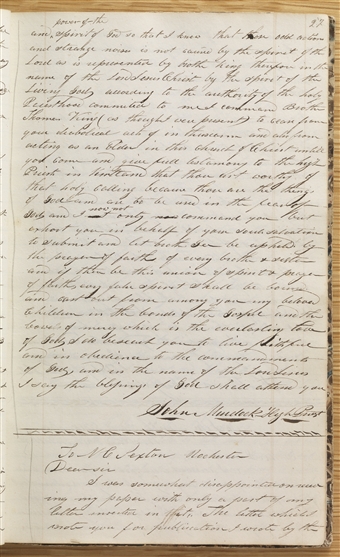 power of the
am spirit of God so that I know that those odd actions
and strange noises is not caused by the spirit of the
Lord as is represented by brother King therefore in the
name of the Lord Jesus Christ by the spirit of the
Living God according to the authority of the holy
Priesthood committed to me I command Brother
Thomas King (as though over present) to cease from
your diabolical acts of enthusiasm and also from
acting as an Elder in this Church of Christ until
you come and give full testimony to the high
Priest in Kirtland that thou art worthy of
that holy calling because these are the things
of God and are to be used in the fear of
now not
God and I not only command you but
exhort you in behalf of your souls salvation
to submit and let each one be upheld by
the prayer of faith of every brother & sister
and if there be this union of spirit & prayer
of faith every false spirit shall be bound
and cast out from among you my beloved
Children in the bonds of the Gospel and the
bowels of mercy which is the everlasting love
of God I do beseech you to live faithful
and in obedience to the commandments
of God and in the name of the Lord Jesus
I say the blessings of God shall attend you
John Murdock High Priest
27
To N C Sexton Rochester
Dear sir
I was somewhat disappointed on receiv
ing my paper with only a part of my
letter inserted in it. The letter which I
wrote you for publication I wrote by the